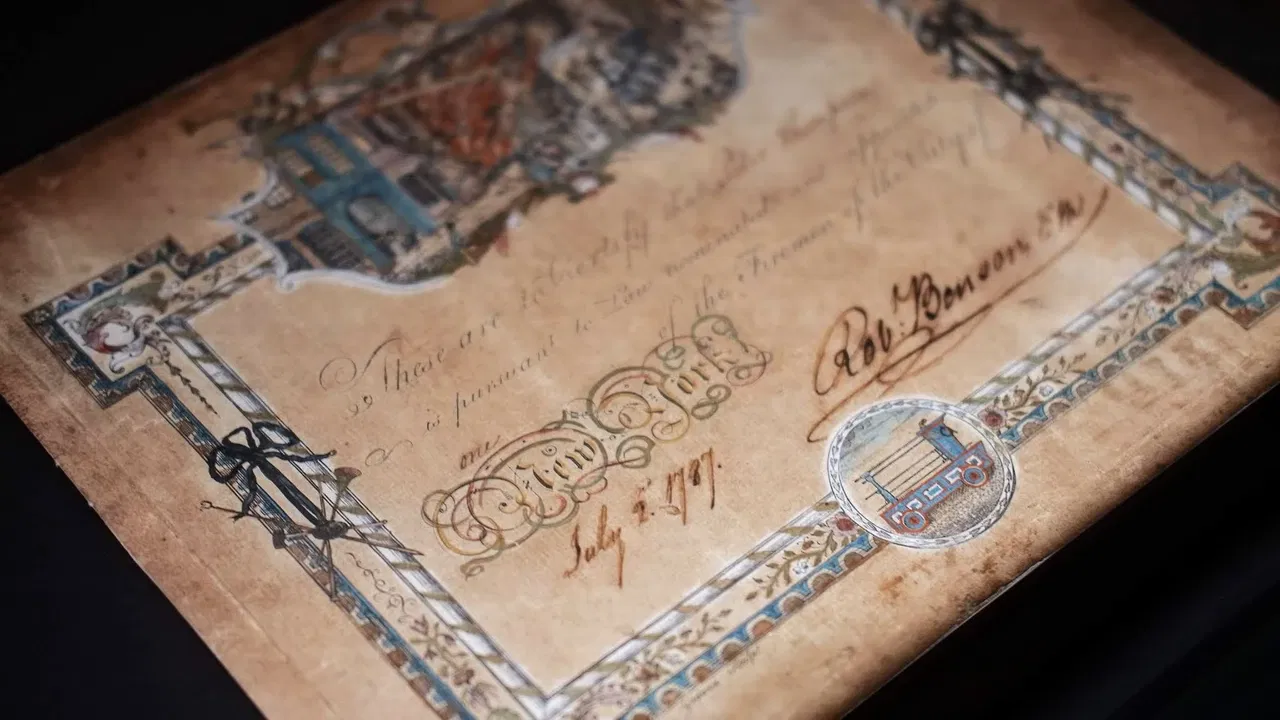 These are to Certify that
is pursuant to Law nominated and
one of the Firemen of the City of
New York
Rob.t Benson
July 2. 1787.